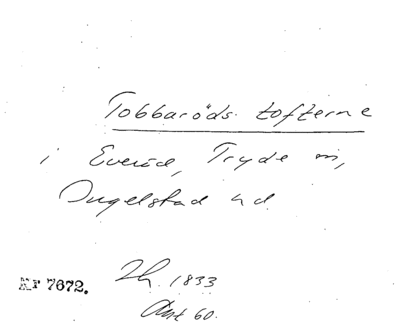 Tobbaröds tofterne
i Everöd, Tryde sn,
Ingelstad hd.
Nr 7672.
1833
60.